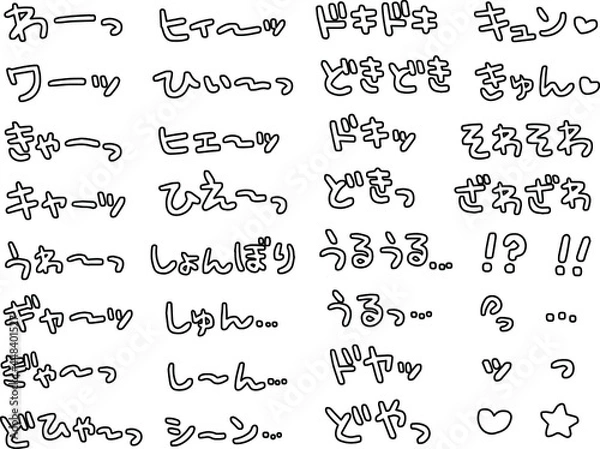 わーっ ヒィ〜ッ ドキドキ キュン♡
ワーッ ひぃ〜っ どきどき きゅん♡
きゃーっ ヒエ〜ッ ドキッ そわそわ
キャーッ ひえ〜っ どきっ ざわざわ
うわ〜っ しょんぼり うるうる… !? !!
ギャ〜ッ しゅん… うるっ… っ …
ぎゃ〜っ し〜ん… ドヤッ ッ っ
どひゃ〜っ シーン… どやっ ♡ ☆
Adobe Stock